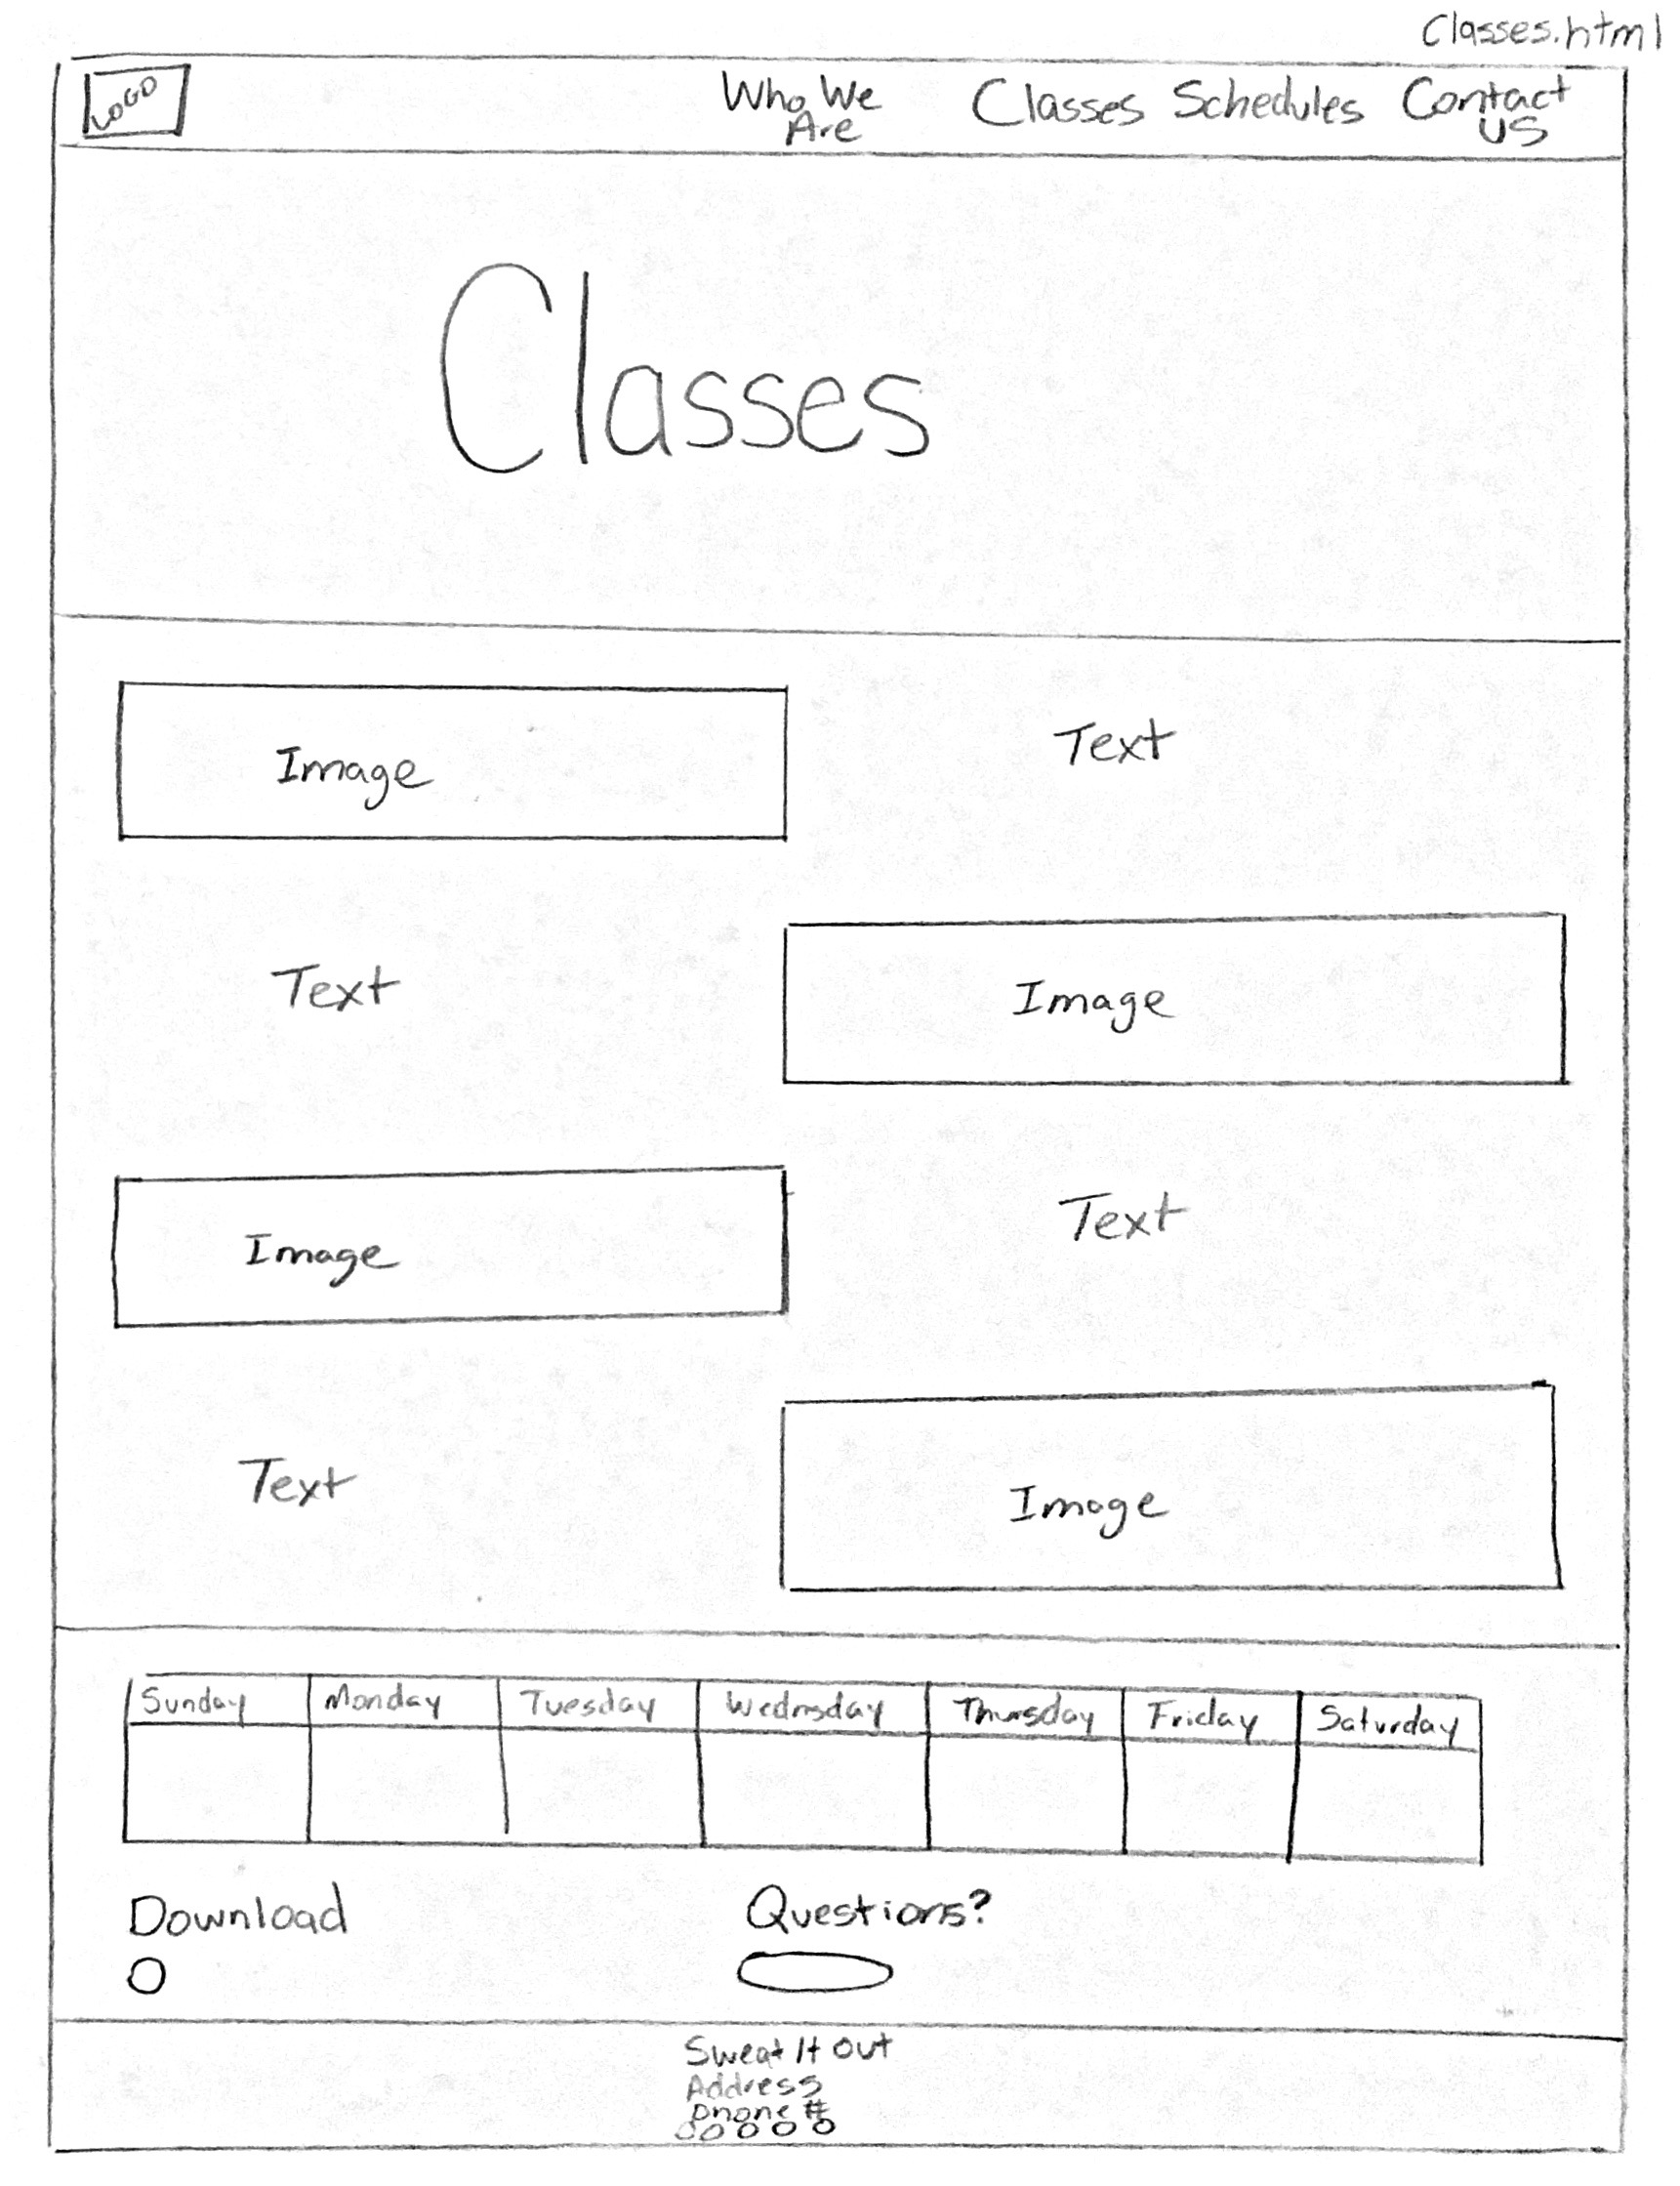 Classes.html
LOGO
Who We
Are
Classes
Schedules
Contact
US
Classes
Image
Text
Text
Image
Image
Text
Text
Image
Sunday Monday Tuesday Wednsday Thursday Friday Saturday
Download
Questions?
Sweat It Out
Address
Phone #